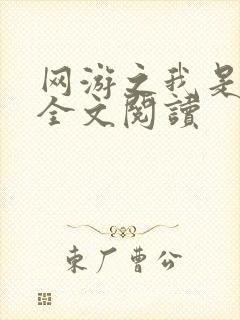 网游之我是
全文阅读
东厂曹公